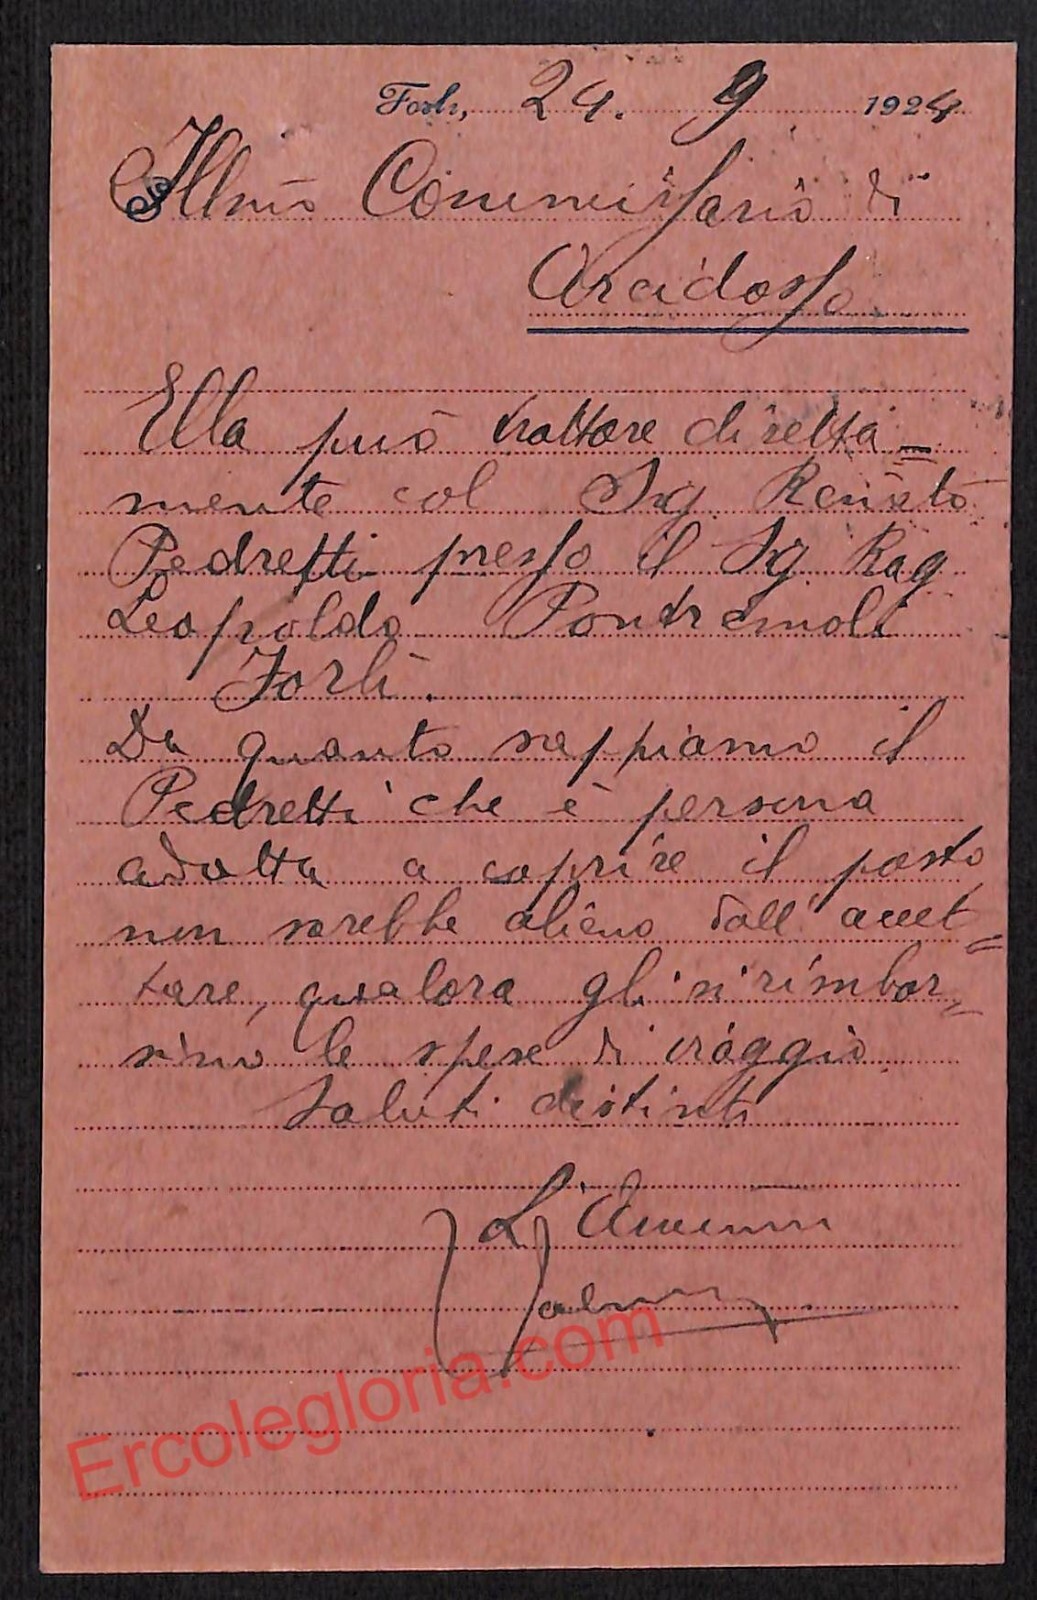 Forlì, 24. 9 1924
Illmo Commissario di
Arcidosso
Ella può trattare diretta=
mente col Sig. Renato
Pedretti presso il Sig. Rag
Leopoldo Pontremoli
Forlì.
Da quanto sappiamo il
Pedretti che è persona
adatta a coprire il posto
non sarebbe alieno dall'accet=
tare, qualora gli si rimbor=
sino le spese di viaggio
Saluti distinti
Ercolegloria.com